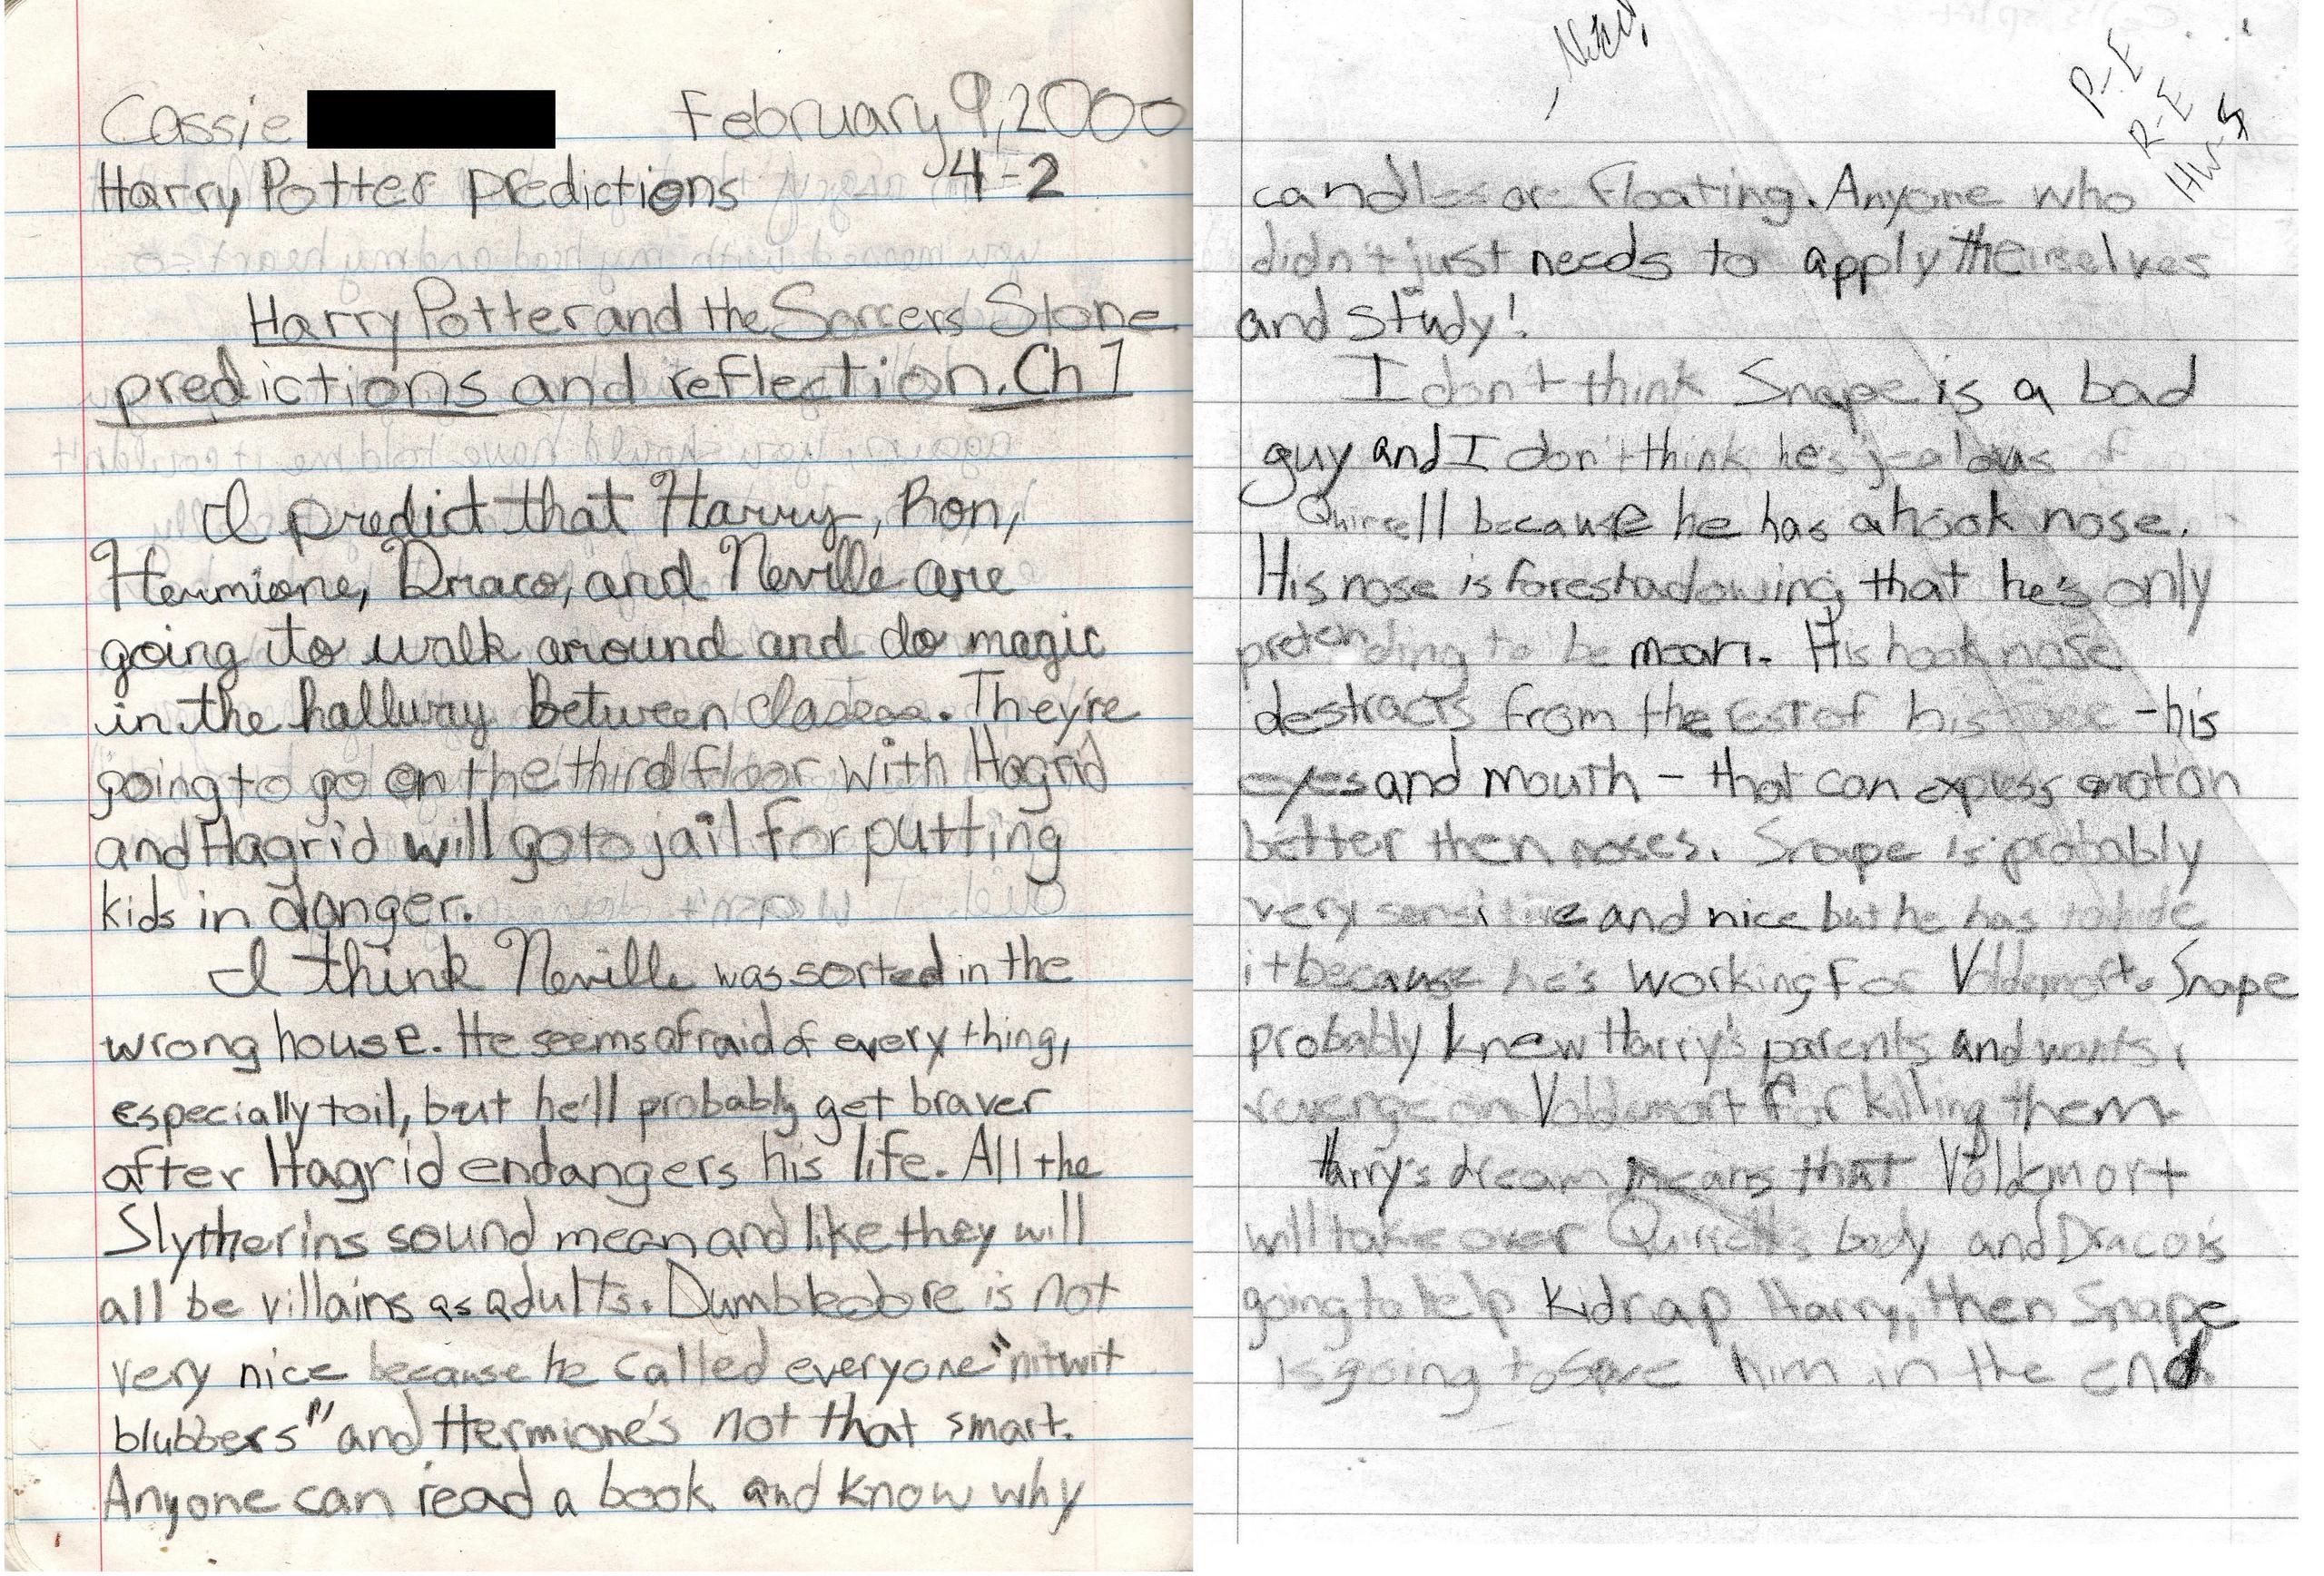 Cassie February 9, 2000
Harry Potter predictions 4-2
Harry Potter and the Sorcers Stone
predictions and reflection. Ch 7
I predict that Harry, Ron,
Hermione, Draco, and Neville are
going to walk around and do magic
in the hallway between classes. They're
going to go on the third floor with Hagrid
and Hagrid will go to jail for putting
kids in danger.
I think Neville was sorted in the
wrong house. He seems afraid of every thing,
especially toil, but he'll probably get braver
after Hagrid endangers his life. All the
Slytherins sound mean and like they will
all be villains as adults. Dumbledore is not
very nice because he called everyone "nitwit
blubbers" and Hermione's not that smart.
Anyone can read a book and know why
P-E
R-E
HW-S
candles are floating. Anyone who
didn't just needs to apply themselves
and study!
I don't think Snape is a bad
guy and I don't think he's jealous of
Quirrell because he has a hook nose.
His nose is foreshadowing that he's only
pretending to be mean. His hook nose
destracts from the rest of his face - his
eyes and mouth - that can express emotion
better then noses. Snape is probably
very sensitive and nice but he has to hide
it because he's working for Voldemort. Snape
probably knew Harry's parents and wants
revenge on Voldemort for killing them.
Harry's dream means that Voldemort
will take over Quirrell's body and Draco is
going to help kidnap Harry, then Snape
is going to save him in the end.